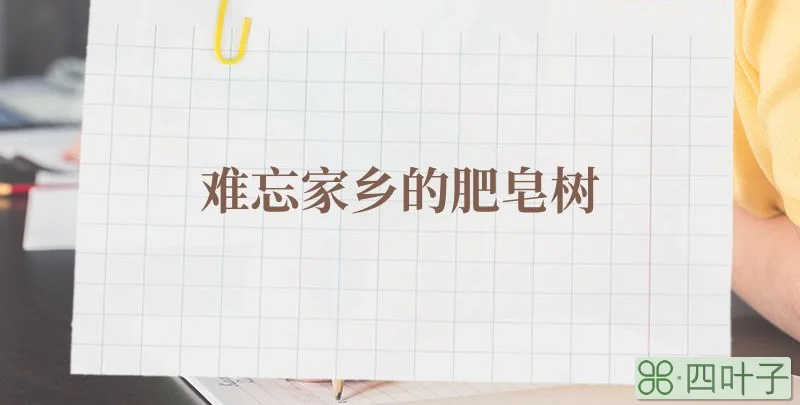 难忘家乡的肥皂树
四叶子